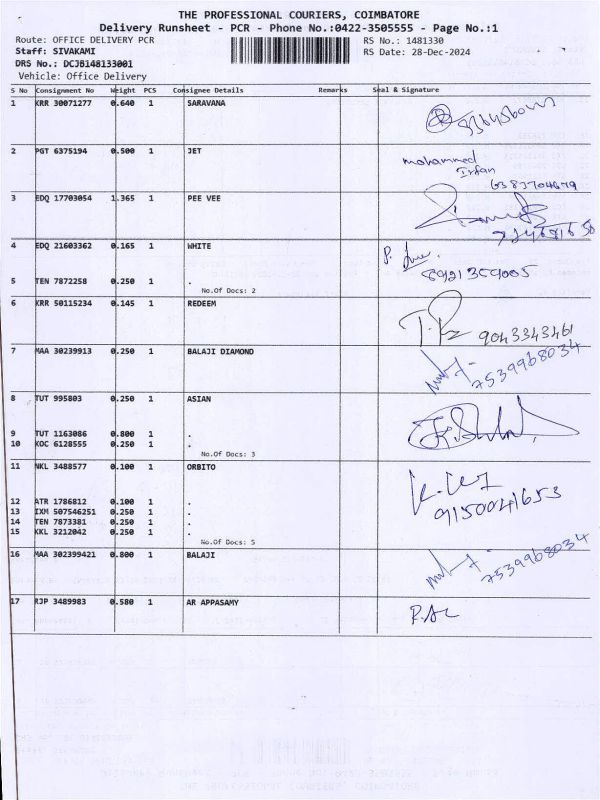 THE PROFESSIONAL COURIERS, COIMBATORE
Delivery Runsheet - PCR - Phone No.:0422-3505555 - Page No.:1
Route: OFFICE DELIVERY PCR
RS No.: 1481330
Staff: SIVAKAMI
RS Date: 28-Dec-2024
DRS No.: DCJB148133001
Vehicle: Office Delivery
S No Consignment No Weight PCS Consignee Details Remarks Seal & Signature
1 KRR 30071277 0.640 1 SARAVANA
2 PGT 6375194 0.500 1 JET
mohammed
Irfan
6383704679
3 EDQ 17703054 1.365 1 PEE VEE
4 EDQ 21603362 0.165 1 WHITE
8921359005
5 TEN 7872258 0.250 1 .
No.Of Docs: 2
6 KRR 50115234 0.145 1 REDEEM
9043343461
7 MAA 30239913 0.250 1 BALAJI DIAMOND
7539968034
8 TUT 995803 0.250 1 ASIAN
9 TUT 1163086 0.800 1 .
10 KOC 6128555 0.250 1 .
No.Of Docs: 3
11 NKL 3488577 0.100 1 ORBITO
9150041653
12 ATR 1786812 0.100 1 .
13 IXM 507546251 0.250 1 .
14 TEN 7873381 0.250 1 .
15 KKL 3212042 0.250 1 .
No.Of Docs: 5
16 MAA 302399421 0.800 1 BALAJI
7539968034
17 RJP 3489983 0.580 1 AR APPASAMY